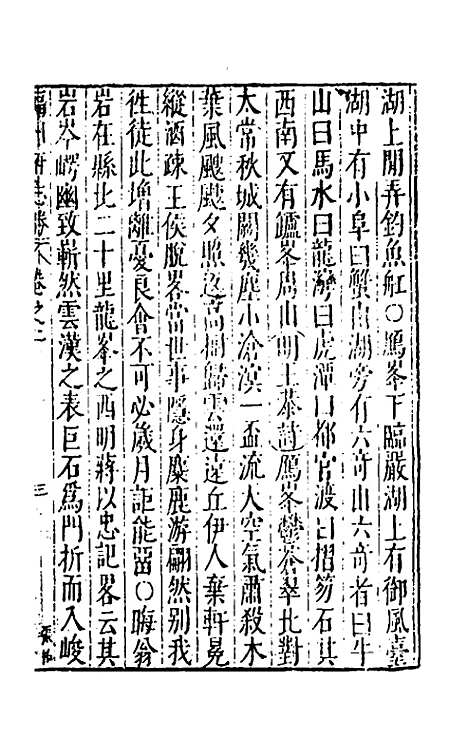 湖上閒弄釣魚舡○鴈峯下臨嚴湖上有御風臺
湖中有小阜曰蟹山湖旁有六奇山六奇者曰牛
山曰馬水曰龍灣曰虎潭曰都官渡曰摺笏石其
西南又有鑪峯眉山明王恭詩鴈峯鬱蒼翠北對
太常秋城闕幾塵小滄溟一盃流大空氣肅殺木
葉風颼颼夕照送高樹歸雲遝遠丘伊人棄軒冕
縱酒踈王侯脫畧當世事隱身麋鹿游翩然別我
徃徒此增離憂良會不可必歲月詎能留○晦翁
岩在縣北二十里龍峯之西明蔣以忠記畧云其
岩岑崿幽致嶄然雲漢之表巨石爲門折而入峻
福州府志勝 卷之二
三